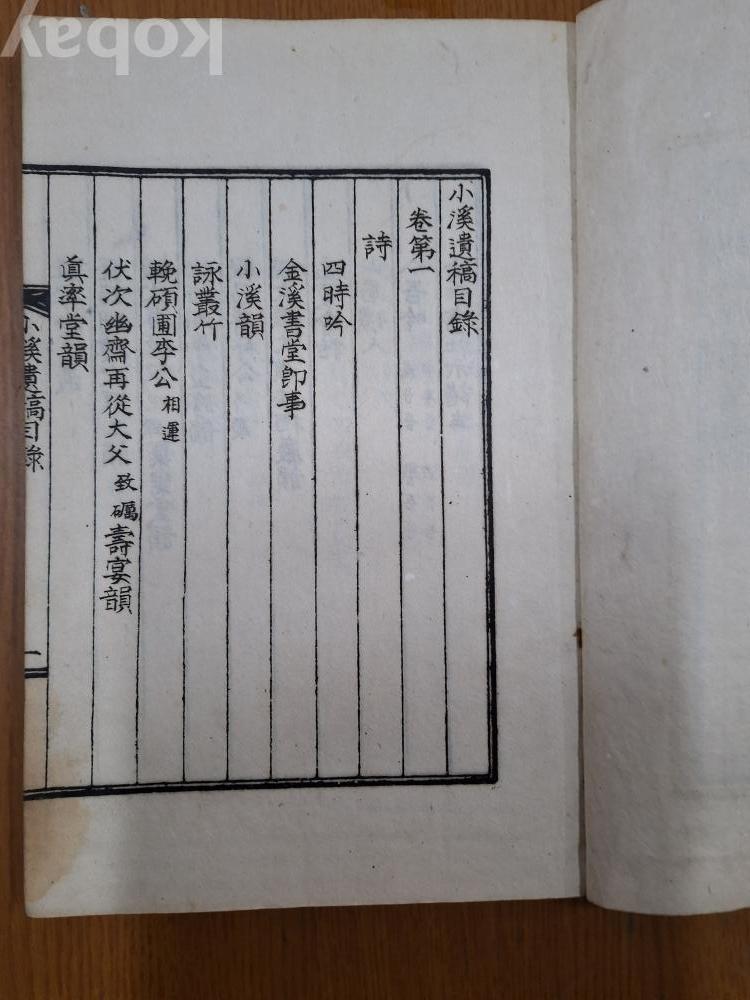 小溪遺稿目錄
卷第一
詩
四時吟
金溪書堂卽事
小溪韻
詠叢竹
輓碩圃李公 相運
伏次幽齋再從大父 致礪 壽宴韻
眞率堂韻
小溪遺稿目錄
一
kobay